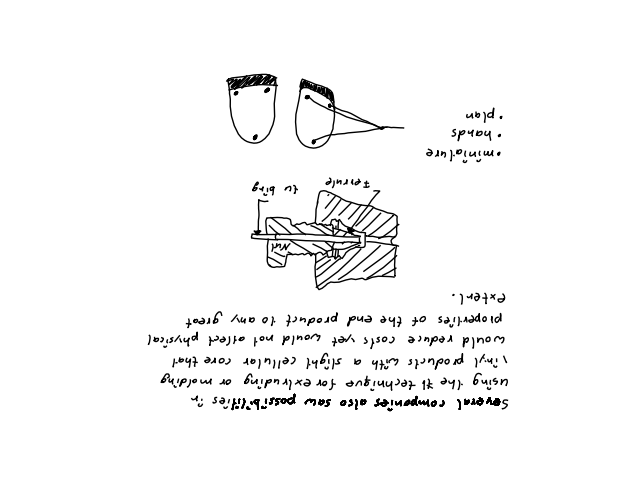 Several companies also saw possibilities in
using the technique for extruding or molding
vinyl products with a slight cellular core that
would reduce costs yet would not affect physical
properties of the end product to any great
extert.
Nut
tubing
Ferrule
• miniature
• hands
• plan